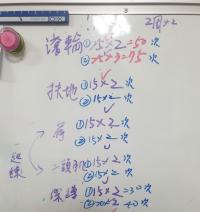 2週×2
當輪①25×2=50次
②25×3=75次
扶地①15×2次
②15×2次
①15×2次
②15×2次
一起練
二頭肌①15×2次
②15×2次
①15×2=30次
②20×2 40次